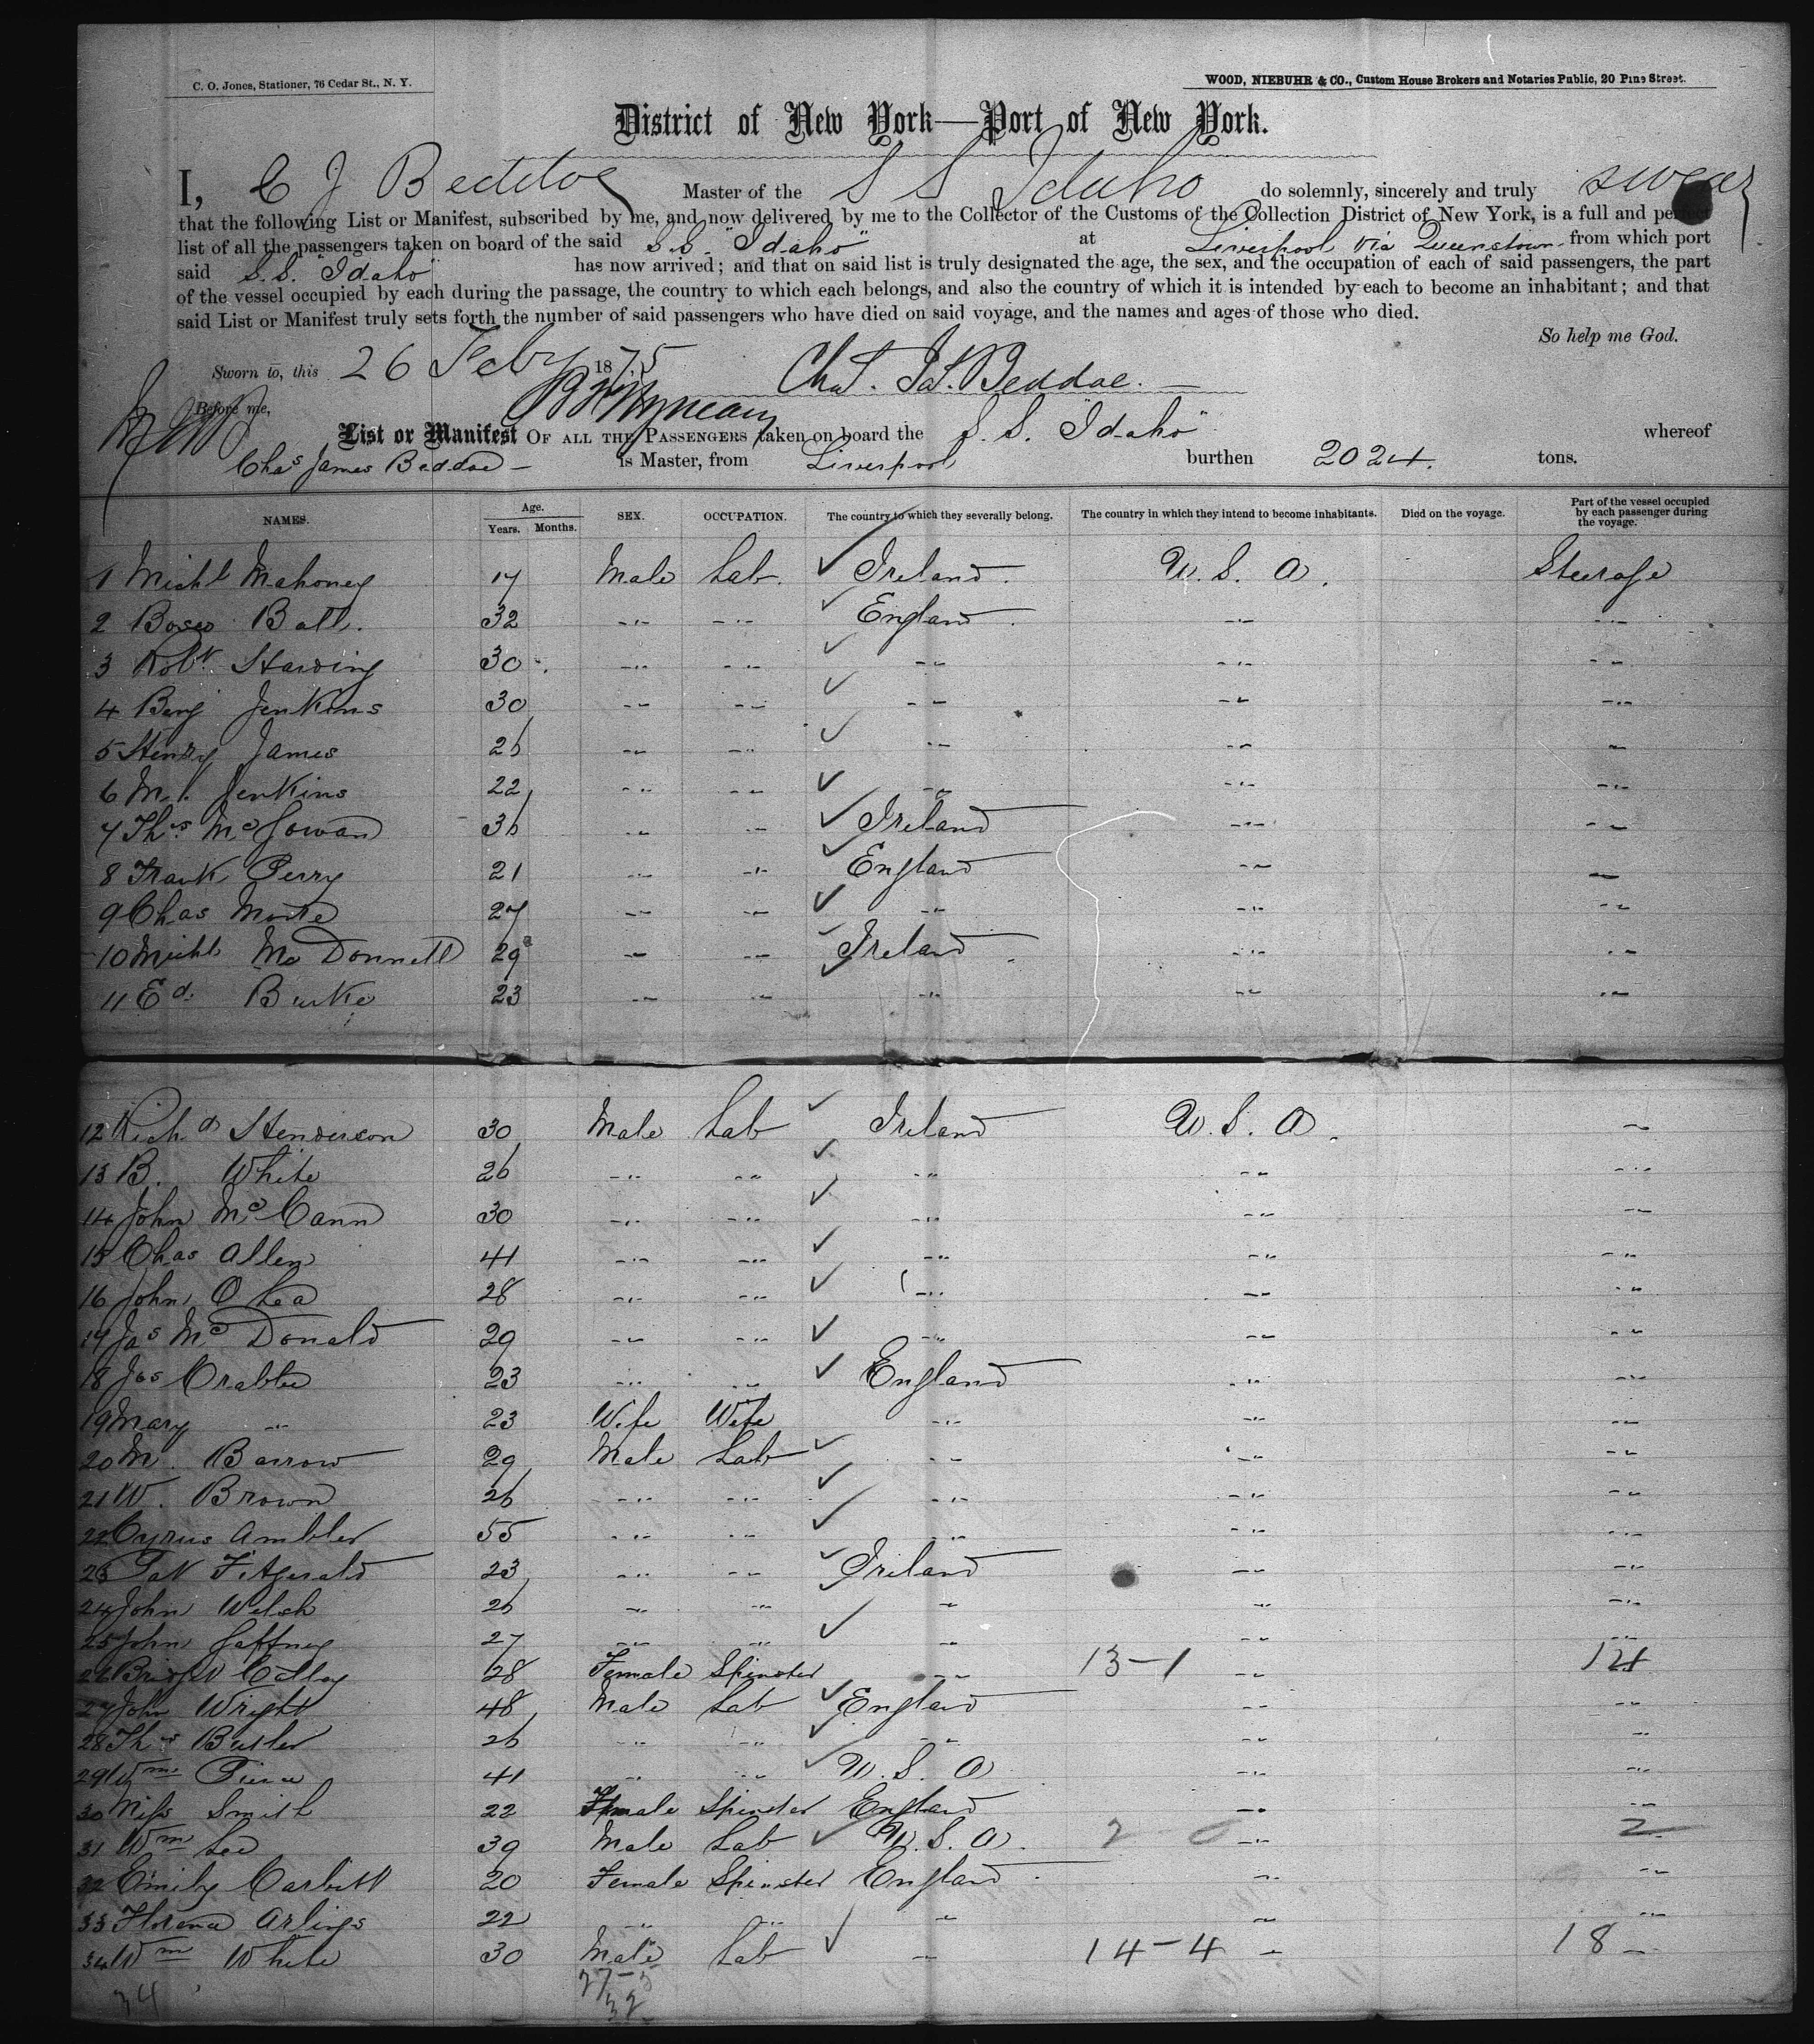 C. O. Jones, Stationer, 76 Cedar St., N. Y.
WOOD, NIEBUHR & CO., Custom House Brokers and Notaries Public, 20 Pine Street.
District of New York—Port of New York.
I, C J Beddoe Master of the S S Idaho do solemnly, sincerely and truly swear
that the following List or Manifest, subscribed by me, and now delivered by me to the Collector of the Customs of the Collection District of New York, is a full and perfect
list of all the passengers taken on board of the said S.S. "Idaho" at Liverpool via Queenstown from which port
said S.S. "Idaho" has now arrived; and that on said list is truly designated the age, the sex, and the occupation of each of said passengers, the part
of the vessel occupied by each during the passage, the country to which each belongs, and also the country of which it is intended by each to become an inhabitant; and that
said List or Manifest truly sets forth the number of said passengers who have died on said voyage, and the names and ages of those who died.
So help me God.
Sworn to, this 26 Feby 1875 Chas. Js. Beddoe.
Before me,
List or Manifest OF ALL THE PASSENGERS taken on board the S. S. "Idaho" whereof
Chas James Beddoe is Master, from Liverpool burthen 2024 tons.
NAMES. Age. Years. Months. SEX. OCCUPATION. The country to which they severally belong. The country in which they intend to become inhabitants. Died on the voyage. Part of the vessel occupied by each passenger during the voyage.
1 Michl Mahoney 17 Male Lab. Ireland. U. S. A. Steerage
2 Ball. 32 -"- -"- England. -"- -"-
3 Robt Harding 30 -"- -"- -"- -"- -"-
4 Benj Jenkins 30 -"- -"- -"- -"- -"-
5 Henry James 26 -"- -"- -"- -"- -"-
6 M. Jenkins 22 -"- -"- -"- -"- -"-
7 Ths McGowan 36 -"- -"- Ireland -"- -"-
8 Frank Perry 21 -"- -"- England -"- -"-
9 Chas Moore 27 -"- -"- -"- -"- -"-
10 Michl McDonnell 29 -"- -"- Ireland -"- -"-
11 Ed. Burke 23 -"- -"- -"- -"- -"-
12 Richd Henderson 30 Male Lab Ireland U. S. A. -"-
13 B. White 26 -"- -"- -"- -"- -"-
14 John McCann 30 -"- -"- -"- -"- -"-
15 Chas Allen 41 -"- -"- -"- -"- -"-
16 John O'Shea 28 -"- -"- -"- -"- -"-
17 Jas McDonald 29 -"- -"- -"- -"- -"-
18 Jos Crabtree 23 -"- -"- England -"- -"-
19 Mary -"- 23 Wife Wife -"- -"- -"-
20 M. Barrow 29 Male Lab -"- -"- -"-
21 W. Brown 26 -"- -"- -"- -"- -"-
22 Cyrus Ambler 55 -"- -"- -"- -"- -"-
23 Pat Fitzgerald 23 -"- -"- Ireland -"- -"-
24 John Welsh 26 -"- -"- -"- -"- -"-
25 John Gaffney 27 -"- -"- -"- -"- -"-
26 Bridget 28 Female Spinster -"- 13-1 -"- 14
27 John Wright 48 Male Lab England -"- -"-
28 Ths Butler 26 -"- -"- -"- -"- -"-
29 Wm Pierce 41 -"- -"- U. S. A -"- -"-
30 Miss Smith 22 Female Spinster England -"- -"-
31 Wm Lee 39 Male Lab U. S. A. 2 0 -"- 2
32 Emily Corbitt 20 Female Spinster England -"- -"-
33 Florence Arlings 22 -"- -"- -"- -"- -"-
34 Wm White 30 Male Lab -"- 14-4 -"- 18
34
27-5
32